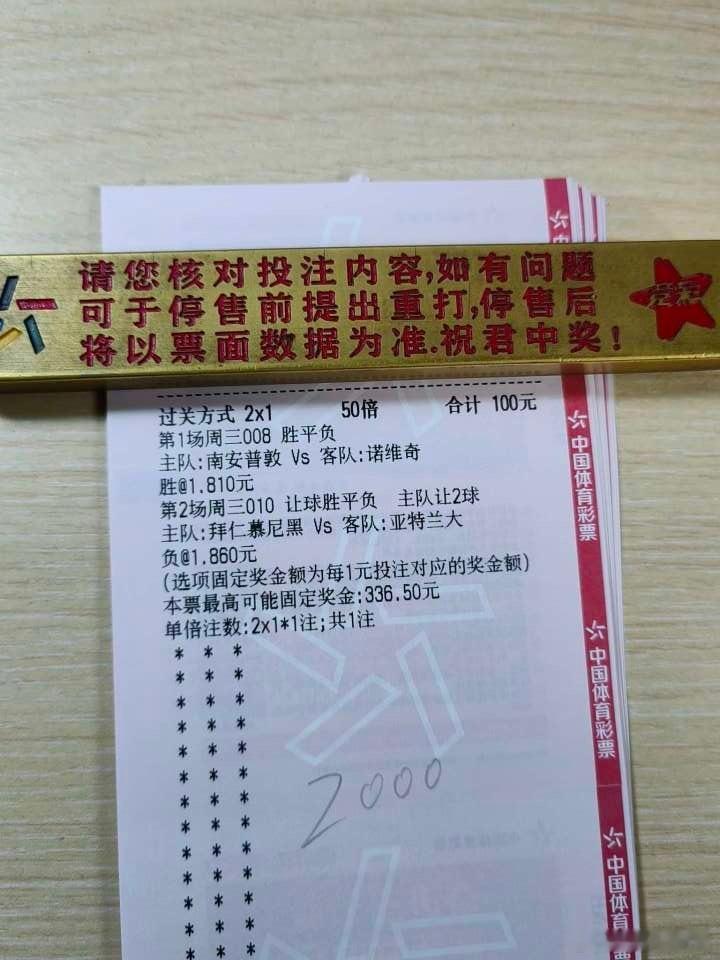 请您核对投注内容,如有问题
可于停售前提出重打,停售后
将以票面数据为准.祝君中奖!
过关方式 2x1 50倍 合计 100元
第1场周三008 胜平负
主队:南安普敦 Vs 客队:诺维奇
胜@1.810元
第2场周三010 让球胜平负 主队让2球
主队:拜仁慕尼黑 Vs 客队:亚特兰大
负@1.860元
(选项固定奖金额为每1元投注对应的奖金额)
本票最高可能固定奖金:336.50元
单倍注数:2x1*1注;共1注
* * *
* * *
* * *
* * *
* * *
* * *
* * *
* * *
* * *
* * *
* * *
* * *
* * *
2000
中国
中国体育彩票
中国体育彩票
中国体育彩票